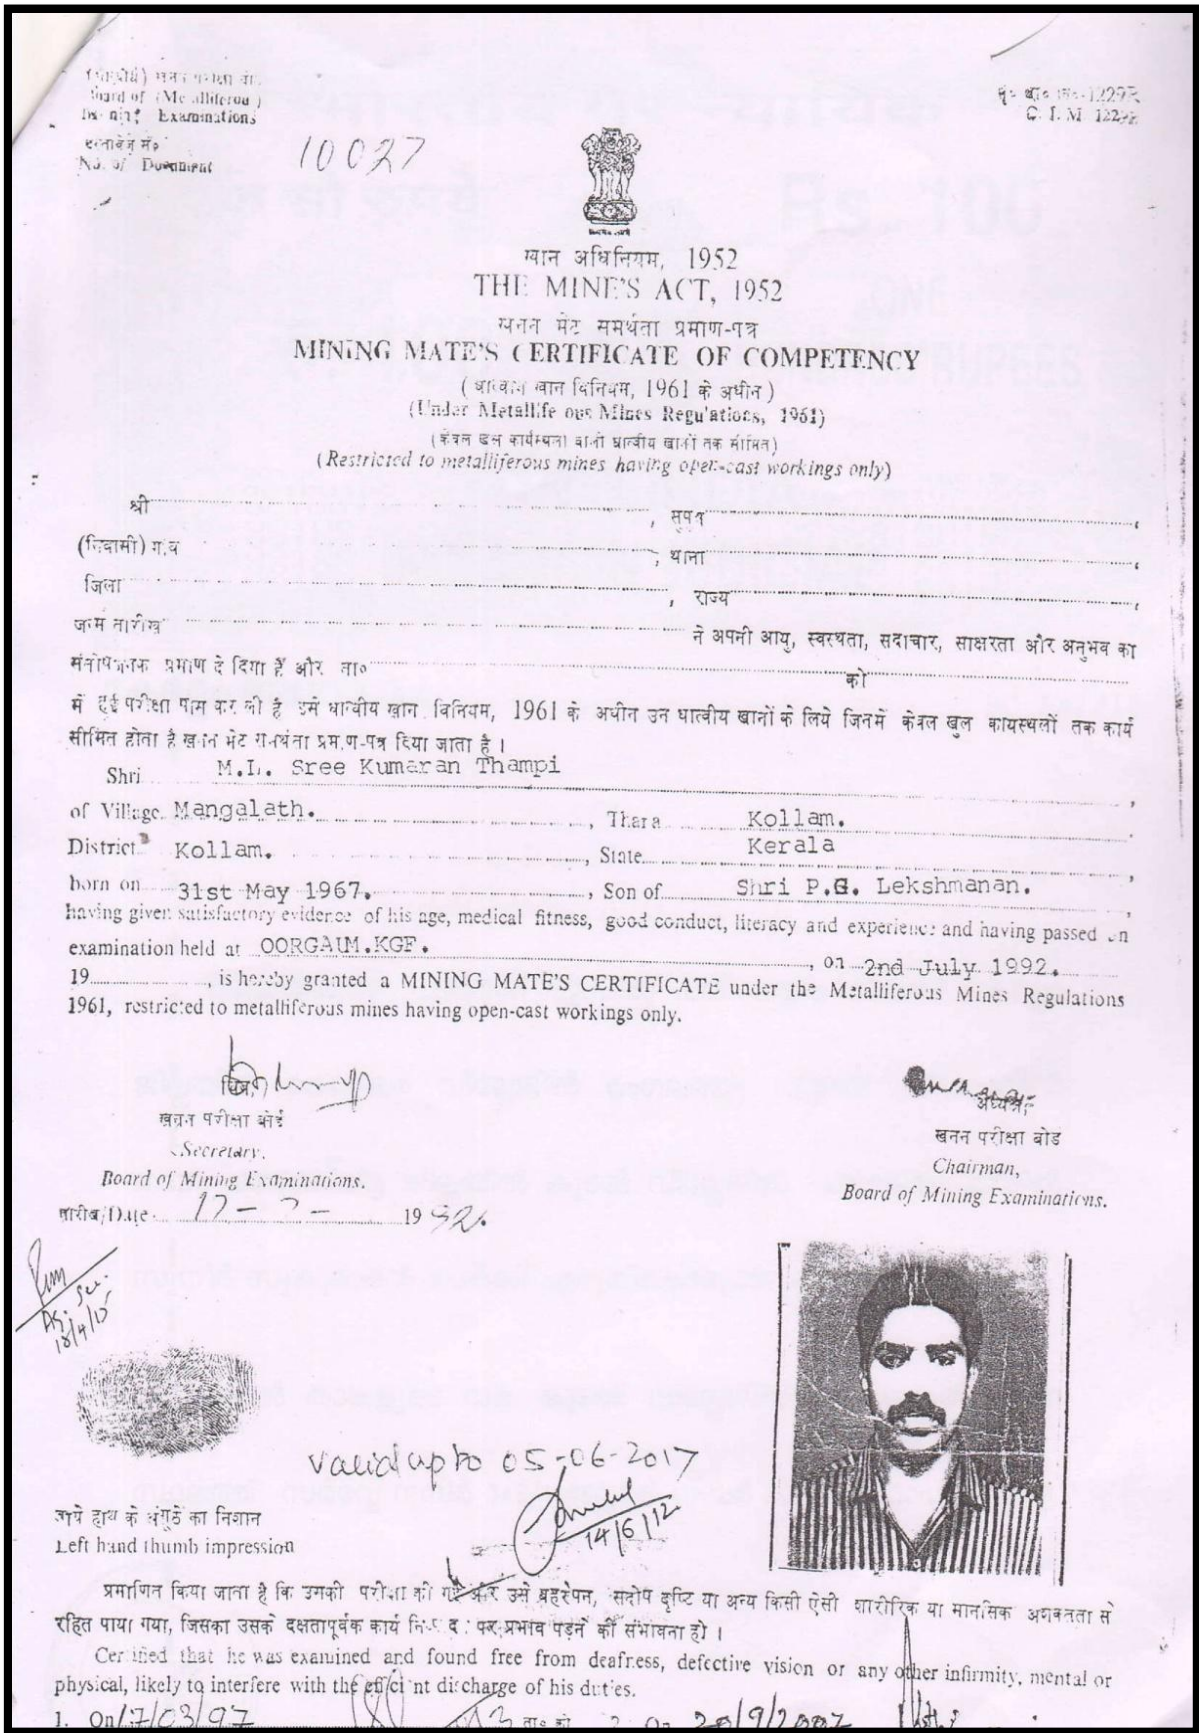 Board of (Metalliferous)
Mining Examinations
No. of Document
10027
C. I. M 1229R
खान अधिनियम, 1952
THE MINE'S ACT, 1952
खनन मेट समर्थता प्रमाण-पत्र
MINING MATE'S CERTIFICATE OF COMPETENCY
(धात्वीय खान विनियम, 1961 के अधीन)
(Under Metalliferous Mines Regulations, 1961)
(Restricted to metalliferous mines having open-cast workings only)
श्री , सुपुत्र ,
(निवासी) गांव , थाना ,
जिला , राज्य ,
जन्म तारीख ने अपनी आयु, स्वस्थता, सदाचार, साक्षरता और अनुभव का
संतोषजनक प्रमाण दे दिया है और ता० को
में हुई परीक्षा पास कर ली है इसे धात्वीय खान विनियम, 1961 के अधीन उन धात्वीय खानों के लिये जिनमें केवल खुल कायस्थलों तक कार्य
सीमित होता है खनन मेट समर्थता प्रमाण-पत्र दिया जाता है ।
Shri M.L. Sree Kumaran Thampi ,
of Village Mangalath. , Thana Kollam.
District Kollam. , State Kerala ,
born on 31st May 1967. , Son of Shri P.G. Lekshmanan. ,
having given satisfactory evidence of his age, medical fitness, good conduct, literacy and experience and having passed an
examination held at OORGAUM.KGF. , on 2nd July 1992.
19 , is hereby granted a MINING MATE'S CERTIFICATE under the Metalliferous Mines Regulations
1961, restricted to metalliferous mines having open-cast workings only.
सचिव, अध्यक्ष,
खनन परीक्षा बोर्ड खनन परीक्षा बोर्ड
Secretary, Chairman,
Board of Mining Examinations. Board of Mining Examinations.
तारीख/Date 17 - 7 - 1992.
18/4/15
valid upto 05-06-2017
14/6/12
बायें हाथ के अंगूठे का निशान
Left hand thumb impression
प्रमाणित किया जाता है कि उसकी परीक्षा की गई और उसे बहरेपन, सदोष दृष्टि या अन्य किसी ऐसी शारीरिक या मानसिक अशक्तता से
रहित पाया गया, जिसका उसके दक्षतापूर्वक कार्य पर प्रभाव पड़ने की संभावना हो ।
Certified that he was examined and found free from deafness, defective vision or any other infirmity, mental or
physical, likely to interfere with the efficient discharge of his duties.
1. On 17/03/97 ता० को 2. On 20/9/2007